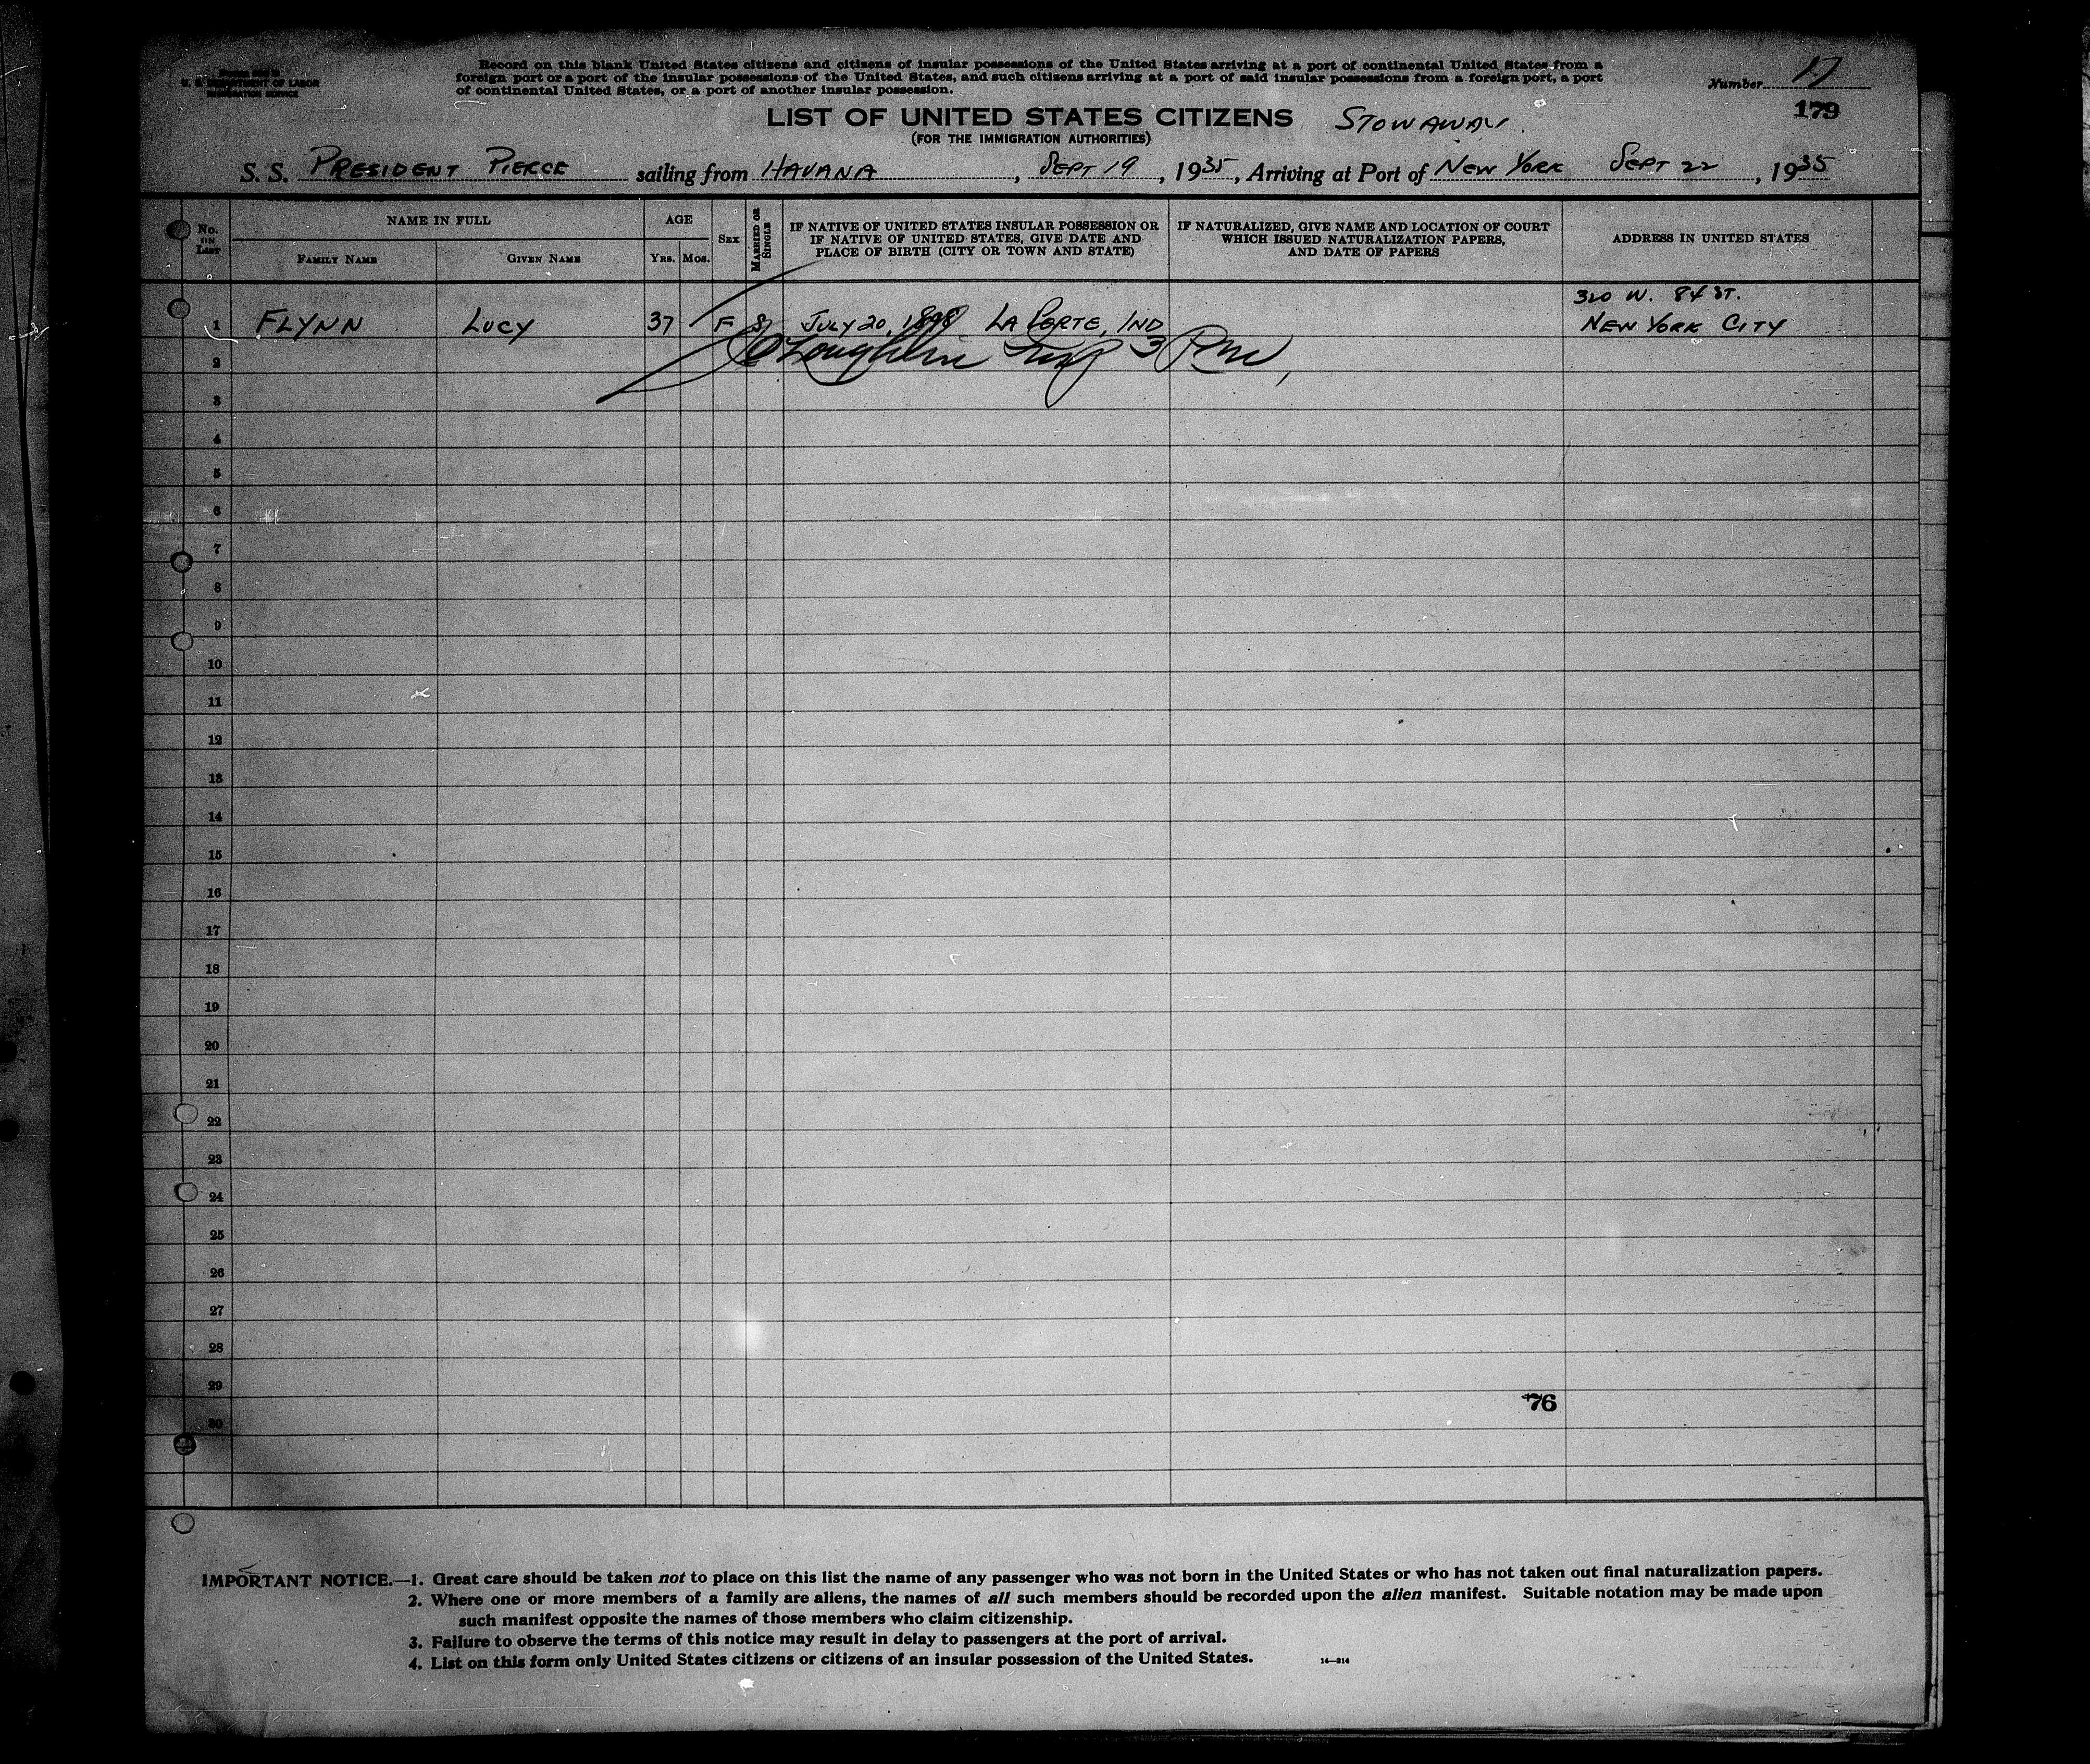 U. S. DEPARTMENT OF LABOR
IMMIGRATION SERVICE
Record on this blank United States citizens and citizens of insular possessions of the United States arriving at a port of continental United States from a
foreign port or a port of the insular possessions of the United States, and such citizens arriving at a port of said insular possessions from a foreign port, a port
of continental United States, or a port of another insular possession.
Number 17
179
LIST OF UNITED STATES CITIZENS STOWAWAY
(FOR THE IMMIGRATION AUTHORITIES)
S. S. PRESIDENT PIERCE sailing from HAVANA, SEPT 19, 1935, Arriving at Port of NEW YORK SEPT 22, 1935
No. ON LIST
NAME IN FULL
FAMILY NAME
GIVEN NAME
AGE
YRS. MOS.
SEX
MARRIED OR SINGLE
IF NATIVE OF UNITED STATES INSULAR POSSESSION OR
IF NATIVE OF UNITED STATES, GIVE DATE AND
PLACE OF BIRTH (CITY OR TOWN AND STATE)
IF NATURALIZED, GIVE NAME AND LOCATION OF COURT
WHICH ISSUED NATURALIZATION PAPERS,
AND DATE OF PAPERS
ADDRESS IN UNITED STATES
320 W. 84 ST.
1 FLYNN LUCY 37 F S JULY 20, 1898 LA PORTE, IND NEW YORK CITY
2 O'Loughlin Insp 3 PM
3
4
5
6
7
8
9
10
11
12
13
14
15
16
17
18
19
20
21
22
23
24
25
26
27
28
29
76
30
IMPORTANT NOTICE.—1. Great care should be taken not to place on this list the name of any passenger who was not born in the United States or who has not taken out final naturalization papers.
2. Where one or more members of a family are aliens, the names of all such members should be recorded upon the alien manifest. Suitable notation may be made upon
such manifest opposite the names of those members who claim citizenship.
3. Failure to observe the terms of this notice may result in delay to passengers at the port of arrival.
4. List on this form only United States citizens or citizens of an insular possession of the United States. 14—214